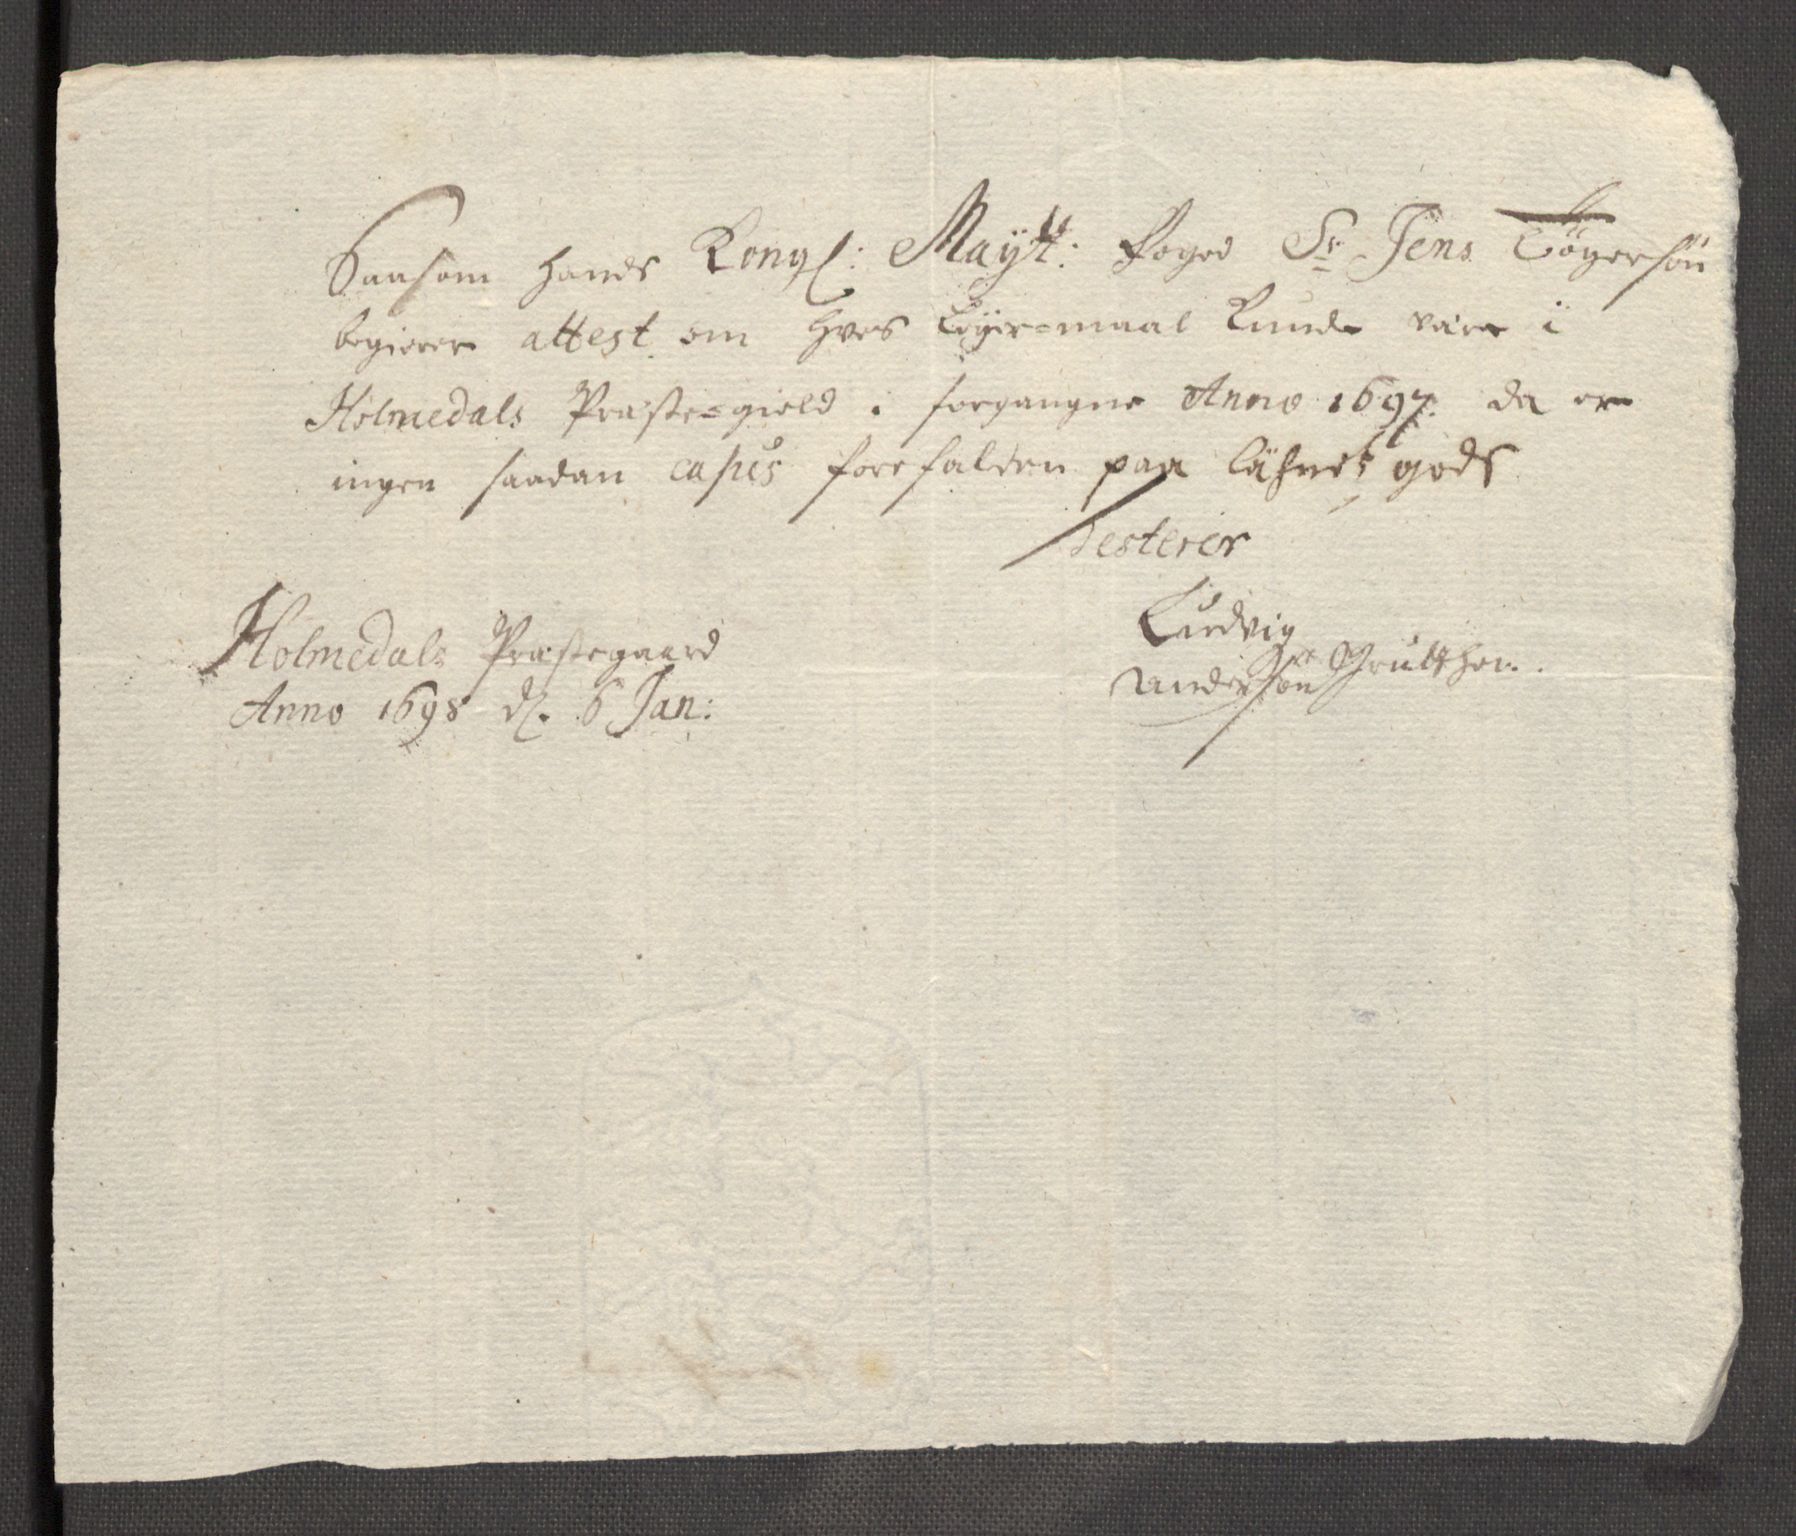 Saasom hands Kongl: Maÿtt: Foged Sr Jens Tøgersøn
begierer attest om hves Leÿer-maal kunde være i
Holmedals Præste-gield i forgangne Anno 1697. da er
ingen saadan casus forefalden paa Lähnetz gods
Testerer
Holmedals Præstegaard
Anno 1698 d. 6 Jan:
Ludvig
Anderson